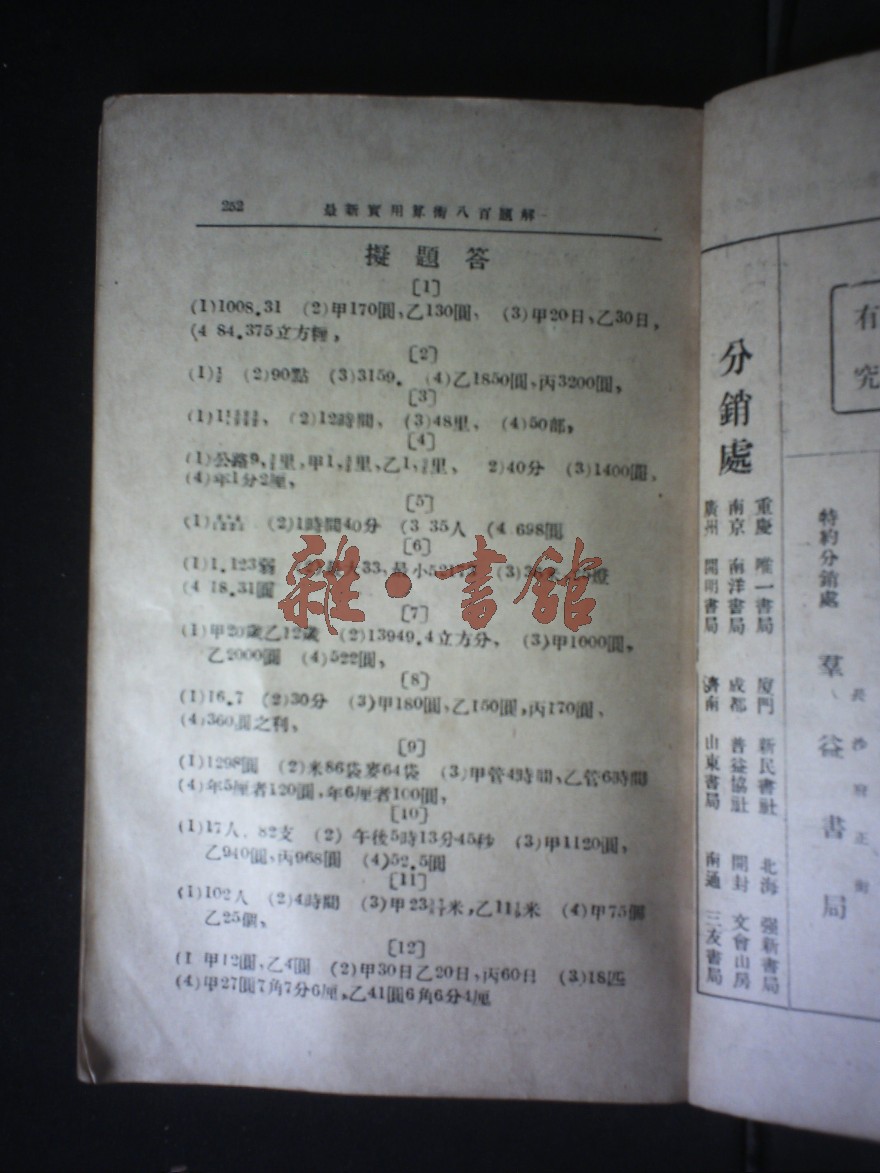 252 最新實用算術八百題解
擬題答
[1]
(1)1008.31 (2)甲170圓、乙130圓、 (3)甲20日、乙30日,
(4 84.375立方
[2]
(1) (2)90點 (3)3159. (4)乙1850圓、丙3200圓,
[3]
(1) (2)12時間、 (3)48里、 (4)50部,
[4]
(1)公路9, 里,甲1, 里、乙1, 里、 2)40分 (3)1400圓、
(4)年1分2厘、
[5]
(1) (2)1時間40分 (3 35人 (4 698圓
[6]
(1)1.123弱 大33、最小 (3)
(4 18.31圓
[7]
(1)甲20歲乙12歲 (2)13949.4立方分、 (3)甲1000圓,
乙2000圓 (4)522圓,
[8]
(1)16.7 (2)30分 (3)甲180圓、乙150圓,丙170圓、
(4)360圓之利、
[9]
(1)1298圓 (2)米86袋麥64袋 (3)甲管4時間、乙管6時間
(4)年5厘者120圓,年6厘者100圓,
[10]
(1)17人、82支 (2) 午後5時13分45秒 (3)甲1120圓,
乙940圓,丙968圓 (4)52.5圓
[11]
(1)102人 (2)4時間 (3)甲23 米,乙11 米 (4)甲75個
乙25個,
[12]
(1 甲12圓、乙4圓 (2)甲30日乙20日、丙60日 (3)18匹
(4)甲27圓7角7分6厘,乙41圓6角6分4厘
雜·書館
有
究
分銷處
重慶 唯一書局 廈門 新民書社 北海 强新書局
南京 南洋書局 成都 普益協社 開封 文會山房
廣州 開明書局 濟南 山東書局 南通 三友書局
特約分銷處 羣益書局
長沙府正街